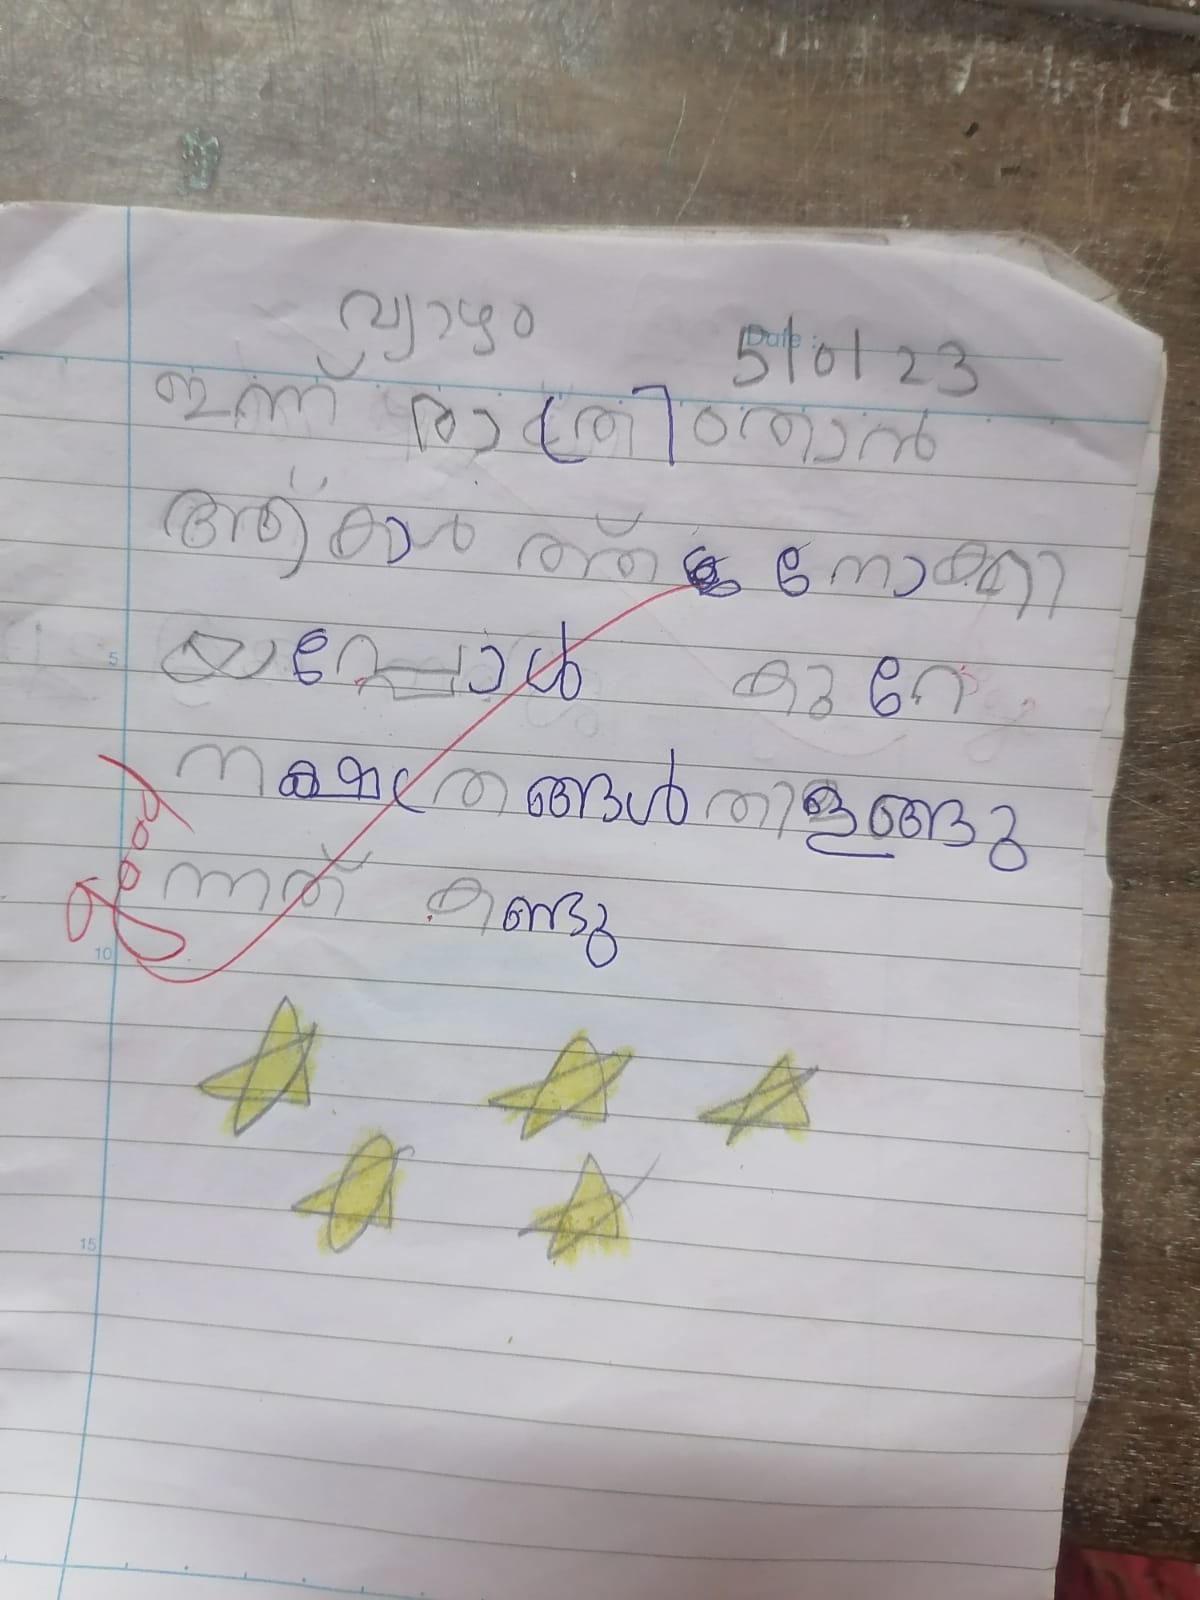 വ്യാഴം
Date :
5/0/23
ഇന്ന് രാത്രി ഞാൻ
നോക്കി
യപ്പോൾ കുറേ
നക്ഷത്രങ്ങൾ തിളങ്ങു
ന്നത് കണ്ടു
good
5
10
15